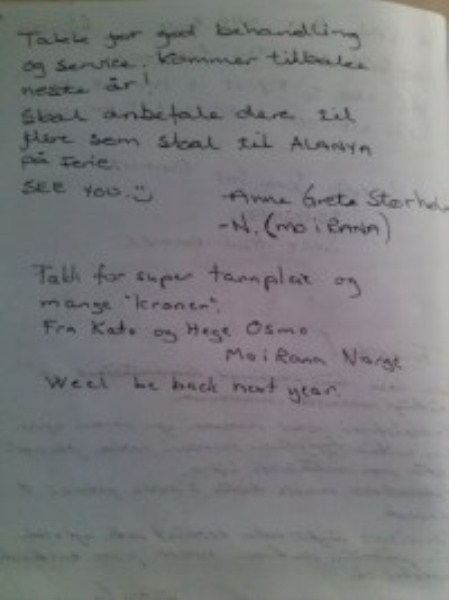 Takk for god behandling
og service. Kommer tilbake
neste år!
Skal anbefale dere til
flere som skal til ALANYA
på Ferie.
SEE YOU. :)
-Anne Grete
-N. (MO i RANA)
Takk for super tannpleie og
mange "kroner".
Fra Kato og Hege Osmo
Mo i Rana Norge
Weel be back next year.